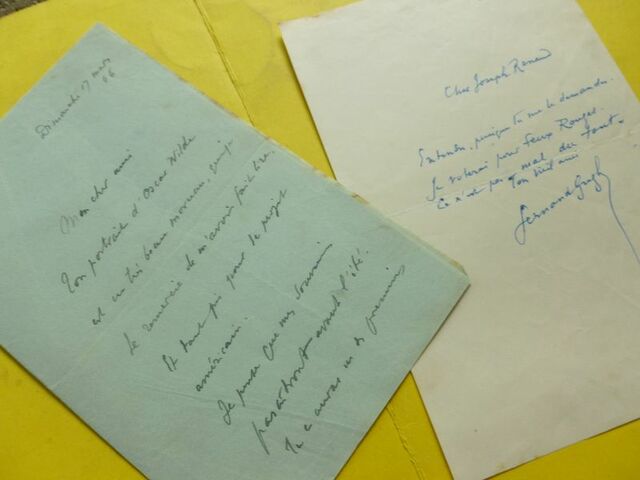 Dimanche 17 mars
Mon cher ami
Ton portrait d'Oscar Wilde
est un très beau morceau, 
Je remercie de m'avoir fait lire.
Et tant pis pour le projet
américain.
Je pense que mes Souvenirs
paraîtront avant l'été.
Tu en auras un des premiers
Cher Joseph Renaud
Entendu, puisque tu me le demandes.
Je voterai pour Feux Rouges.
Ce n'est pas mal du tout.
Ton vieil ami
Fernand Gregh